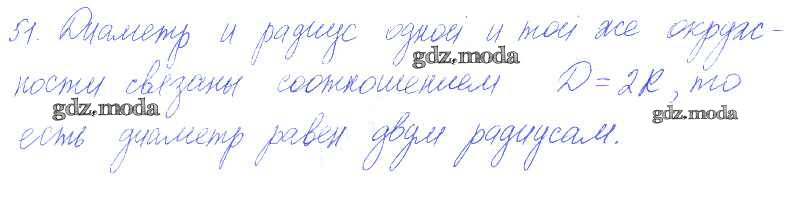 51. Диаметр и радиус одной и той же окруж-
gdz.moda
ности связаны соотношением D = 2R, то
gdz.moda
gdz.moda
есть диаметр равен двум радиусам.